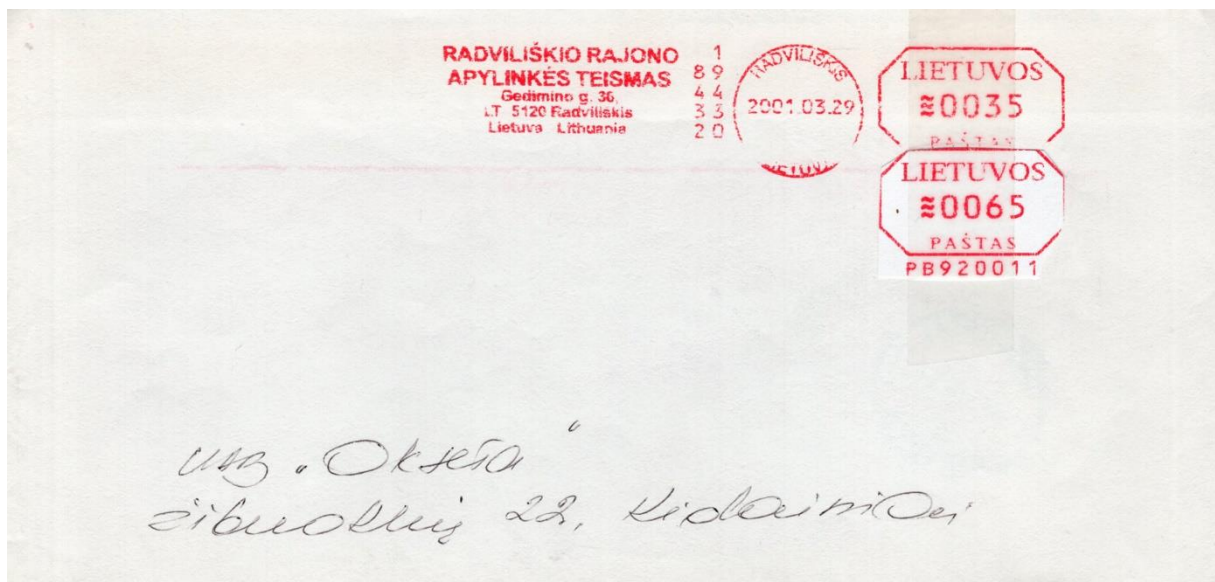 RADVILIŠKIO RAJONO
APYLINKĖS TEISMAS
Gedimino g. 36,
LT 5120 Radviliškis
Lietuva Lithuania
1
89
44
33
20
RADVILIŠKIS
2001.03.29
LIETUVA
LIETUVOS
≋0035
PAŠTAS
LIETUVOS
≋0065
PAŠTAS
PB920011
UAB „
22, Kėdainiai